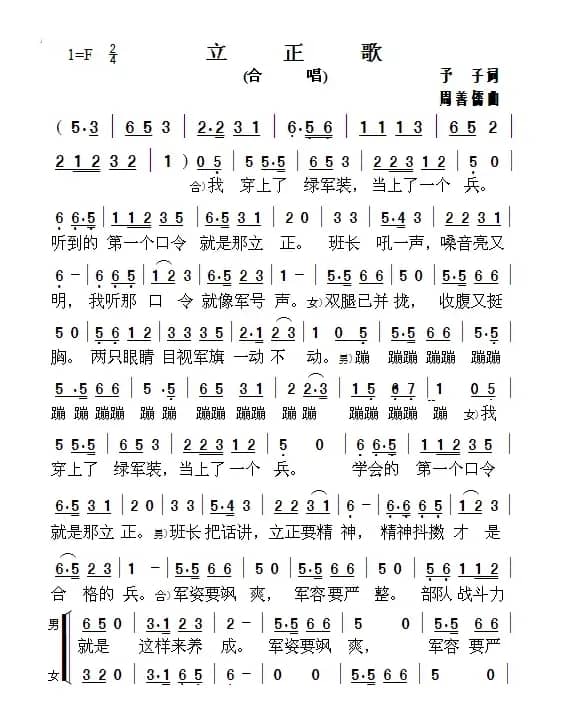 1=F 2/4 立 正 歌
(合 唱)
予 子 词
周 善 儒 曲
( 5·3 | 6 5 3 | 2·2 3 1 | 6·5 6 | 1 1 1 3 | 6 5 2 |
2 1 2 3 2 | 1 ) 0 5 | 5 5·5 | 6 5 3 | 2 2 3 1 2 | 5 0 |
合)我 穿上了 绿军装，当上了一个 兵。
6 6·5 | 1 1 2 3 5 | 6·5 3 1 | 2 0 | 3 3 | 5·4 3 | 2 2 3 1 |
听到的 第一个口令 就是那立 正。 班长 吼一声，嗓音亮又
6 - | 6 6 5 | 1 2 3 | 6·5 2 3 | 1 - | 5·5 6 6 | 5 0 | 5·5 6 6 |
明，我听那 口 令 就像军号 声。女)双腿已并 拢， 收腹又挺
5 0 | 5 6 1 2 | 3 2 3 5 | 2·1 2 3 | 1 0 5 | 5·5 6 6 | 5·5 6 6 |
胸。两只眼睛 目视军旗 一动 不 动。男)蹦 蹦蹦蹦蹦 蹦蹦蹦蹦
5 ·5 6 6 | 5 ·5 | 6 5 3 1 | 2 2·3 | 1 5 6 7 | 1 0 5 |
蹦 蹦蹦蹦 蹦 蹦 蹦蹦蹦蹦 蹦 蹦蹦 蹦蹦蹦蹦 蹦 女)我
5 5·5 | 6 5 3 | 2 2 3 1 2 | 5 0 | 6 6·5 | 1 1 2 3 5 |
穿上了 绿军装，当上了一个 兵。 学会的 第一个口令
6·5 3 1 | 2 0 | 3 3 | 5·4 3 | 2 2 3 1 | 6 - | 6·6 6 5 | 1 2 3 |
就是那立 正。男)班长 把话讲，立正要精 神，精神抖擞 才 是
6·5 2 3 | 1 0 | 5·5 6 6 | 5 0 | 5·5 6 6 | 5 0 | 5 6 1 2 |
合 格的 兵。合)军姿要飒 爽，军容要严 整。部队战斗力
男 6 5 0 | 3·1 2 3 | 2 - | 5·5 6 6 | 5 0 | 5·5 6 6 |
就是 这样来养 成。 军姿要飒 爽， 军容 要严
女 3 2 0 | 3·1 6 5 | 6 - | 5·5 6 6 | 5 0 | 5·5 6 6 |